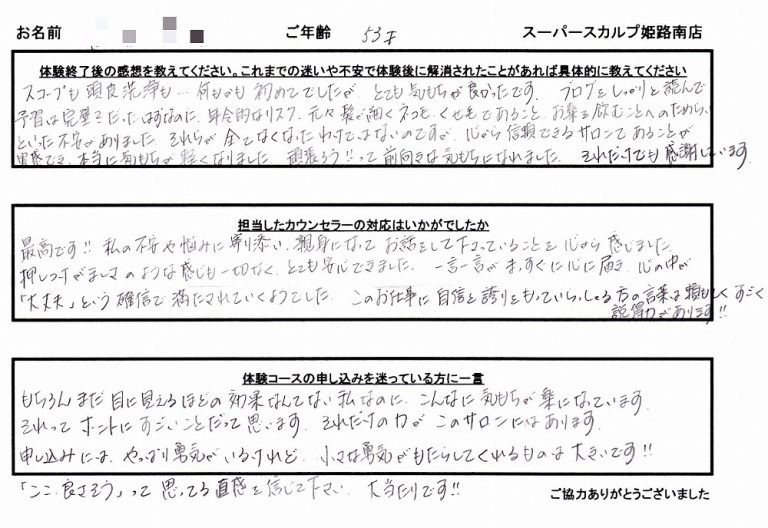 お名前 ご年齢 53才 スーパースカルプ姫路南店
体験終了後の感想を教えてください。これまでの迷いや不安で体験後に解消されたことがあれば具体的に教えてください
スコープも頭皮洗浄も…何もかも初めてでしたが、とても気もちが良かったです。ブログをしっかりと読んで
予習は完璧!だったはずなのに、身体的なリスク、元々髪が細くネコっ毛、くせ毛であること、お薬を飲むことへのためらい
といった不安がありました。それらが全てなくなったわけではないのですが、心から信頼できるサロンであることが
実感でき、本当に気もちが軽くなりました。頑張ろう!!って前向きな気もちになれました。それだけでも感謝しています。
担当したカウンセラーの対応はいかがでしたか
最高です!!私の不安や悩みに寄り添い、親身になってお話をして下さっていることを心から感じました。
押しつけがましさのような感じも一切なく、とても安心できました。一言一言がまっすぐに心に届き、心の中が
「大丈夫」という確信で満たされていくようでした。このお仕事に自信と誇りをもっていらっしゃる方の言葉は頼もしくすごく
説得力があります!!
体験コースの申し込みを迷っている方に一言
もちろんまだ目に見えるほどの効果なんてない私なのに、こんなに気もちが楽になっています。
それってホントにすごいことだって思います。それだけの力がこのサロンにはあります。
申し込みには、やっぱり勇気がいるけれど、小さな勇気がもたらしてくれるものは大きいです!!
「ここ、良さそう」って思ってる直感を信じて下さい。大当たりです!!
ご協力ありがとうございました